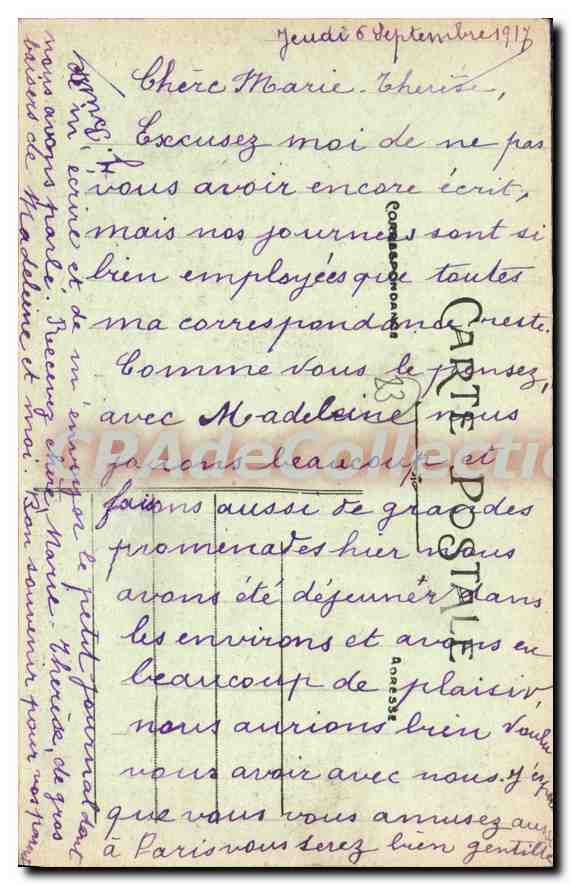 Jeudi 6 Septembre 1917
Chère Marie-Therèse,
Excusez moi de ne pas
vous avoir encore écrit,
mais nos journées sont si
bien employées que toutes
ma correspondance reste.
Comme vous le pensez,
avec Madeleine nous
jouons beaucoup et
faisons aussi de grandes
promenades hier nous
avons été déjeuner dans
les environs et avons eu
beaucoup de plaisir,
nous aurions bien voulu
vous avoir avec nous. J'espère
que vous vous amusez aussi
à Paris vous serez bien gentille
de m'écrire et de m'envoyer le petit journal dont
nous avons parlé. Recevez chère Marie-Therèse, de gros
baisers de Madeleine et moi. Bon souvenir pour vos
CARTE POSTALE
CORRESPONDANCE
ADRESSE
83
SPAdeCollection